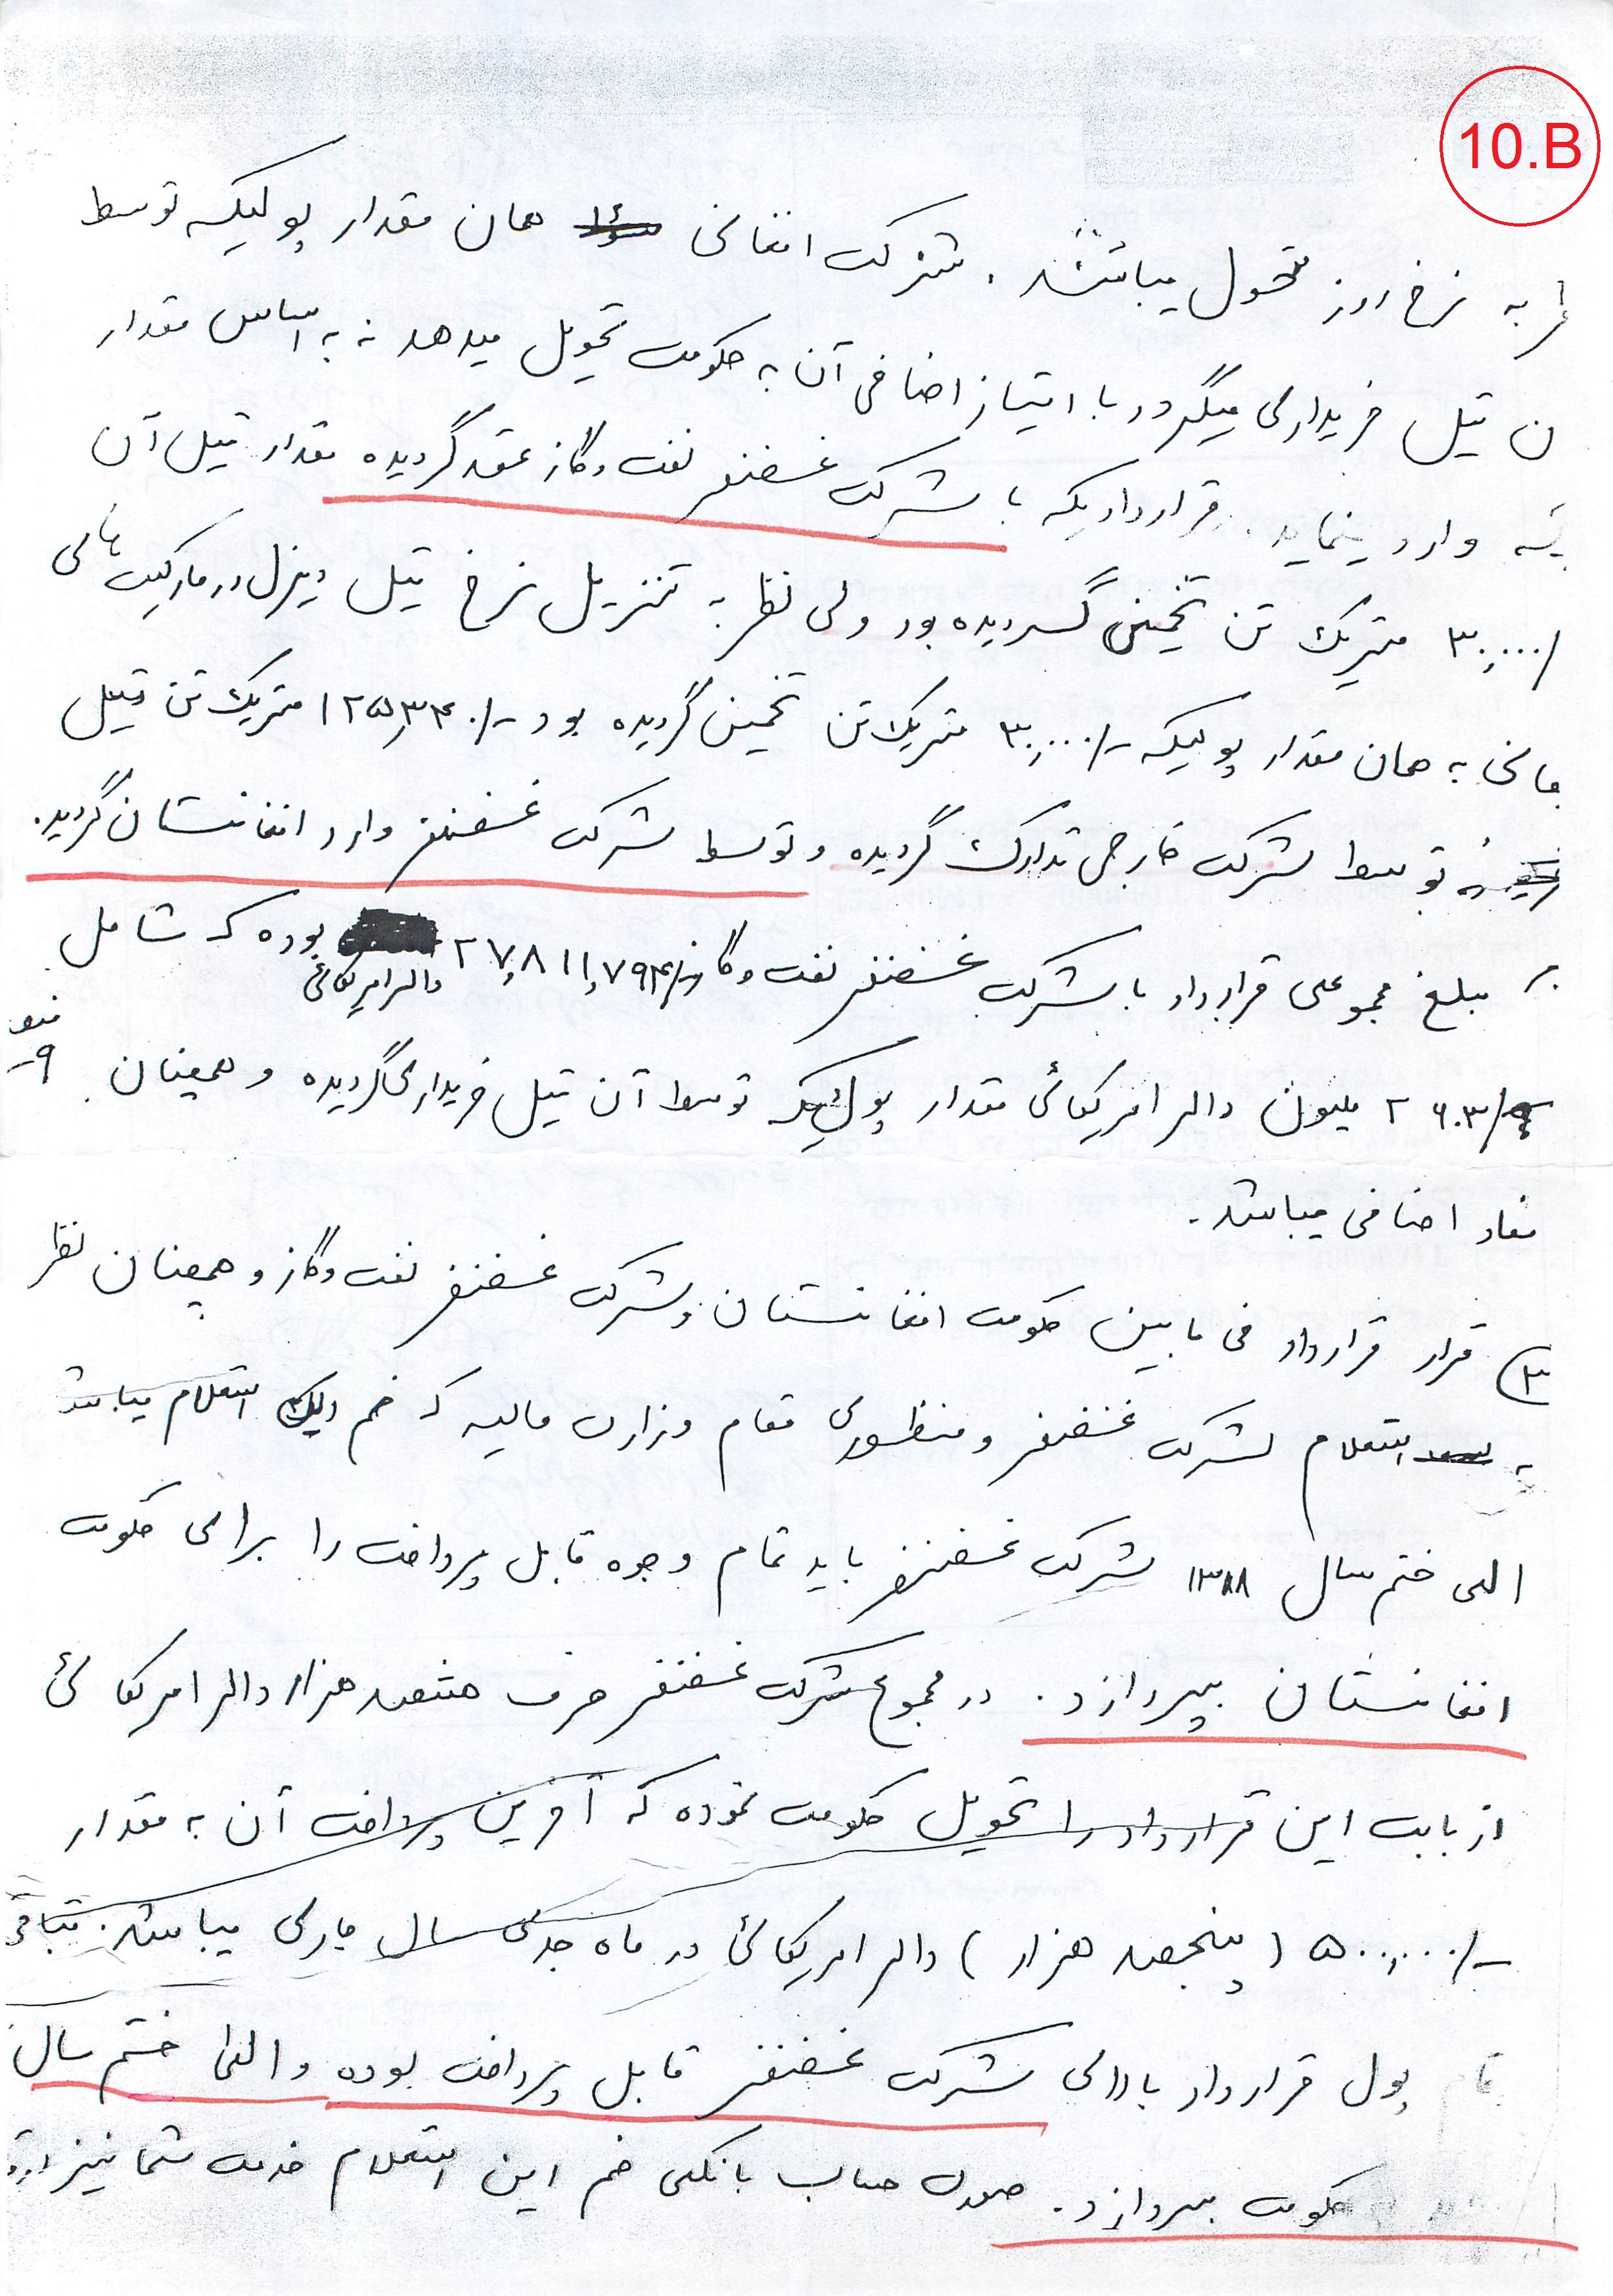 10.B
به نرخ روز تحویل میباشد. شرکت افغانی همان مقدار پولیکه توسط
تیل خریداری میگردد با امتیاز اضافی آن به حکومت تحویل میدهد نه به اساس مقدار
وارد مینماید. قراردادیکه با شرکت غضنفر نفت و گاز عقد گردیده مقدار تیل آن
۳۰,۰۰۰/ متریک تن تخمین گردیده بود ولی نظر به تنزیل نرخ تیل دیزل در مارکیت های
به همان مقدار پولیکه ۳۰,۰۰۰/- متریک تن تخمین گردیده بود ۳۴۰/- متریک تن تیل
توسط شرکت خارجی تدارک گردیده و توسط شرکت غضنفر وارد افغانستان گردید.
مبلغ مجموعی قرارداد با شرکت غضنفر نفت و گاز ۲۷,۸۱۱,۷۹۴/ دالر امریکائی بوده که شامل
۲۶.۳/ ملیون دالر امریکائی مقدار پولیکه توسط آن تیل خریداری گردیده و همچنان
مفاد اضافی میباشد.
۳) قرار قرارداد فی مابین حکومت افغانستان و شرکت غضنفر نفت و گاز و همچنان نظر
به استعلام شرکت غضنفر و منظوری مقام وزارت مالیه که ضم استعلام میباشد
الی ختم سال ۱۳۸۸ شرکت غضنفر باید تمام وجوه قابل پرداخت را برای حکومت
افغانستان بپردازد. در مجموع شرکت غضنفر صرف هشتصد هزار دالر امریکائی
از بابت این قرارداد را تحویل حکومت نموده که آخرین پرداخت آن به مقدار
۵۰۰,۰۰۰/- (پنجصد هزار) دالر امریکائی در ماه جدی سال جاری میباشد. متباقی
پول قرارداد بالای شرکت غضنفر قابل پرداخت بوده و الی ختم سال
حکومت بپردازد. صورت حساب بانکی ضم این استعلام خدمت شما نیز